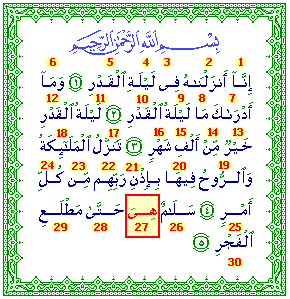 بِسْمِ ٱللَّهِ ٱلرَّحْمَٰنِ ٱلرَّحِيمِ
1 2 3 4 5 6
إِنَّآ أَنزَلْنَٰهُ فِى لَيْلَةِ ٱلْقَدْرِ ١ وَمَآ
7 8 9 10 11 12
أَدْرَىٰكَ مَا لَيْلَةُ ٱلْقَدْرِ ٢ لَيْلَةُ ٱلْقَدْرِ
13 14 15 16 17 18
خَيْرٌ مِّنْ أَلْفِ شَهْرٍ ٣ تَنَزَّلُ ٱلْمَلَٰٓئِكَةُ
19 20 21 22 23 24
وَٱلرُّوحُ فِيهَا بِإِذْنِ رَبِّهِم مِّن كُلِّ
أَمْرٍ ٤ سَلَٰمٌ هِىَ حَتَّىٰ مَطْلَعِ
25 26 27 28 29
ٱلْفَجْرِ ٥
30